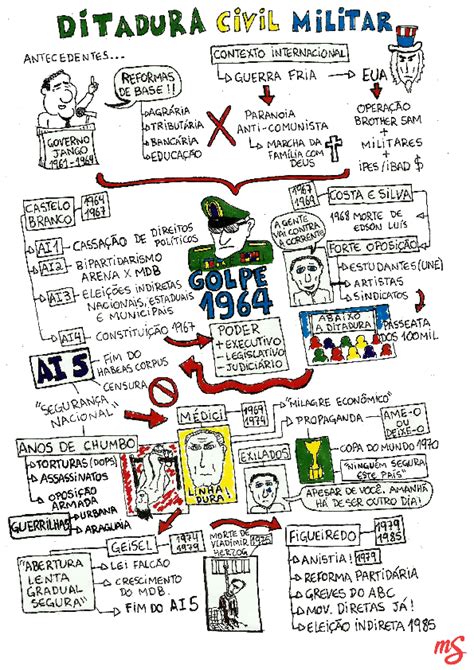 DITADURA CIVIL MILITAR
ANTECEDENTES...
REFORMAS
DE BASE!!
GOVERNO
JANGO
1961-1964
AGRÁRIA
TRIBUTÁRIA
BANCÁRIA
EDUCAÇÃO
X
CONTEXTO INTERNACIONAL
GUERRA FRIA
EUA
PARANOIA
ANTI-COMUNISTA
MARCHA DA
FAMÍLIA COM
DEUS
OPERAÇÃO
BROTHER SAM
+
MILITARES
+
IPES/IBAD $
CASTELO
BRANCO
1964
1967
AI1
CASSAÇÃO DE DIREITOS
POLÍTICOS
AI2
BIPARTIDARISMO
ARENA X MDB
AI3
ELEIÇÕES INDIRETAS
NACIONAIS, ESTADUAIS
E MUNICIPAIS
AI4
CONSTITUIÇÃO 1967
GOLPE
1964
PODER
+ EXECUTIVO
- LEGISLATIVO
- JUDICIÁRIO
1967
1969
COSTA E SILVA
1968 MORTE DE
EDSON LUÍS
FORTE OPOSIÇÃO
ESTUDANTES (UNE)
ARTISTAS
SINDICATOS
A GENTE
VAI CONTRA
A CORRENTE
ABAIXO
A DITADURA
PASSEATA
DOS 100MIL
AI5
FIM DO
HABEAS CORPUS
CENSURA
"SEGURANÇA
NACIONAL"
MÉDICI
1969
1974
"MILAGRE ECONÔMICO"
PROPAGANDA
AME-O
OU
DEIXE-O
COPA DO MUNDO 1970
"NINGUÉM SEGURA
ESTE PAÍS"
ANOS DE CHUMBO
TORTURAS (DOPS)
ASSASSINATOS
OPOSIÇÃO
ARMADA
GUERRILHAS
URBANA
ARAGUAIA
LINHA
DURA!
EXILADOS
APESAR DE VOCÊ, AMANHÃ
HÁ DE SER OUTRO DIA!
GEISEL
1974
1979
"ABERTURA
LENTA
GRADUAL
SEGURA"
LEI FALCÃO
CRESCIMENTO
DO MDB.
FIM DO AI5
MORTE DE
VLADIMIR
HERZOG
1975
FIGUEIREDO
1979
1985
ANISTIA! 1979
REFORMA PARTIDÁRIA
GREVES DO ABC
MOV. DIRETAS JÁ!
ELEIÇÃO INDIRETA 1985
mS